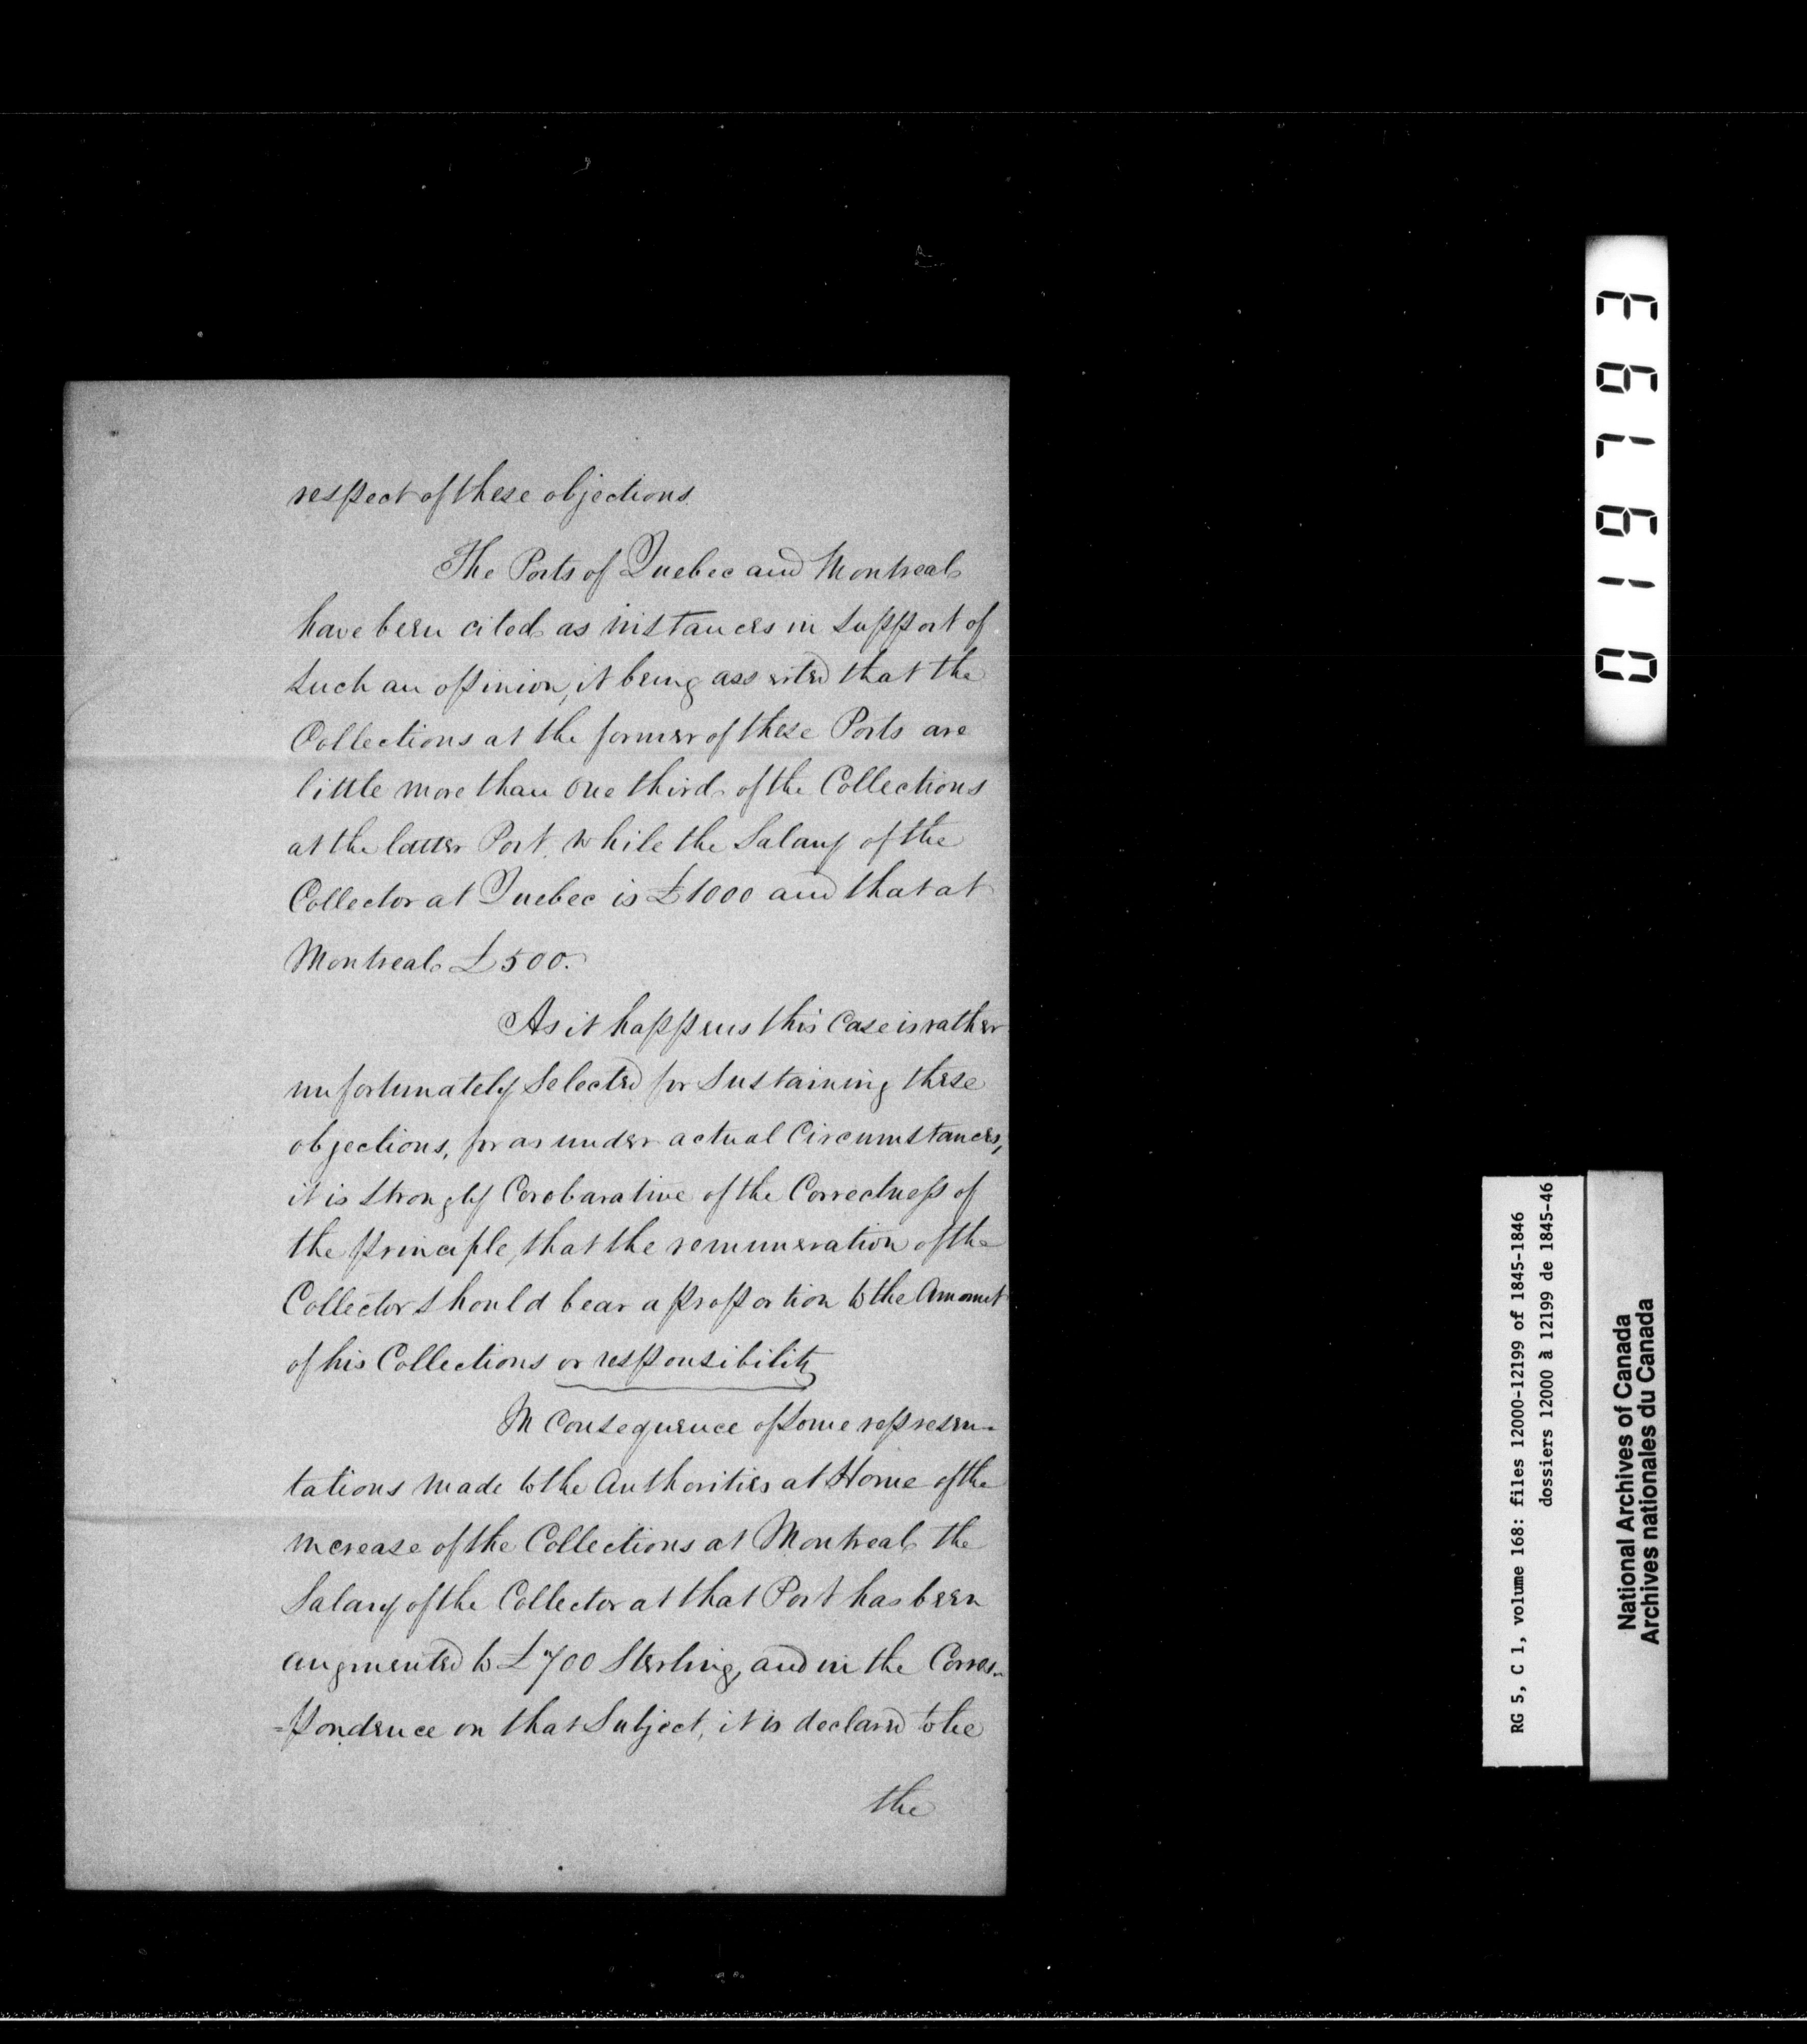 respect of these objections.
The Ports of Quebec and Montreal
have been cited as instances in support of
such an opinion, it being asserted that the
Collections at the former of these Ports are
little more than one third of the Collections
at the latter Port, while the Salary of the
Collector at Quebec is £1000 and that at
Montreal £500.
As it happens this Case is rather
unfortunately Selected for Sustaining these
objections, for as under actual Circumstances,
it is Strongly Corobarative of the Correctness of
the principle, that the remuneration of the
Collector should bear a proportion to the Amount
of his Collections or responsibility
In Consequence of some represen-
tations made to the Authorities at Home of the
increase of the Collections at Montreal the
Salary of the Collector at that Port has been
augmented to £700 Sterling, and in the Corres-
=pondence on that Subject, it is declared to be
the
016793
RG 5, C 1, volume 168: files 12000-12199 of 1845-1846
dossiers 12000 à 12199 de 1845-46
National Archives of Canada
Archives nationales du Canada